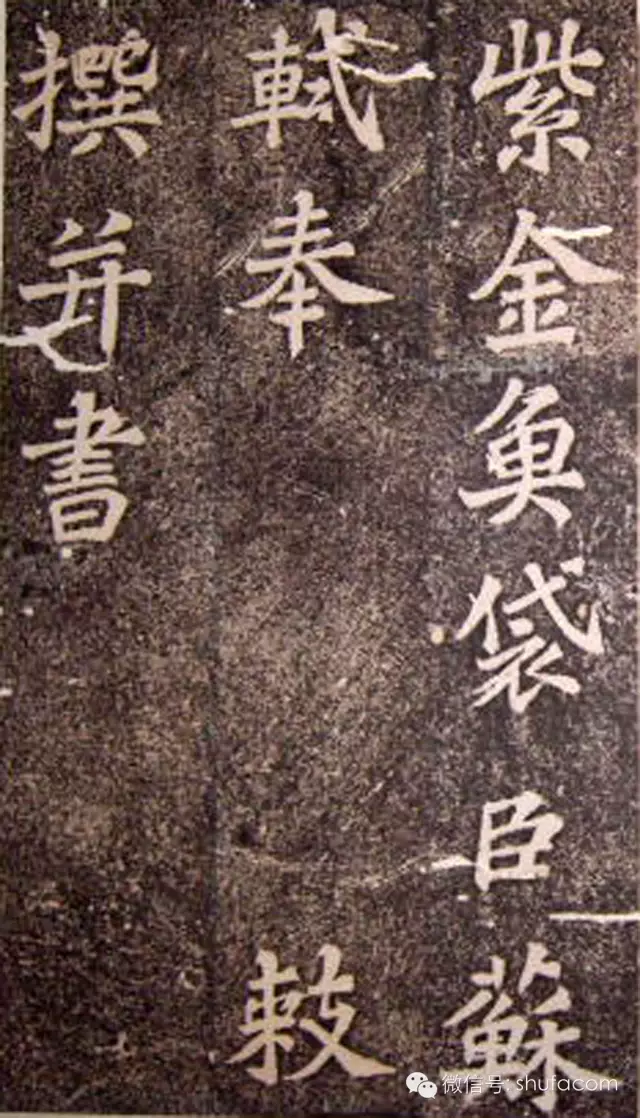 紫金魚袋臣蘇
軾奉敕
撰并書
微信号: shufacom